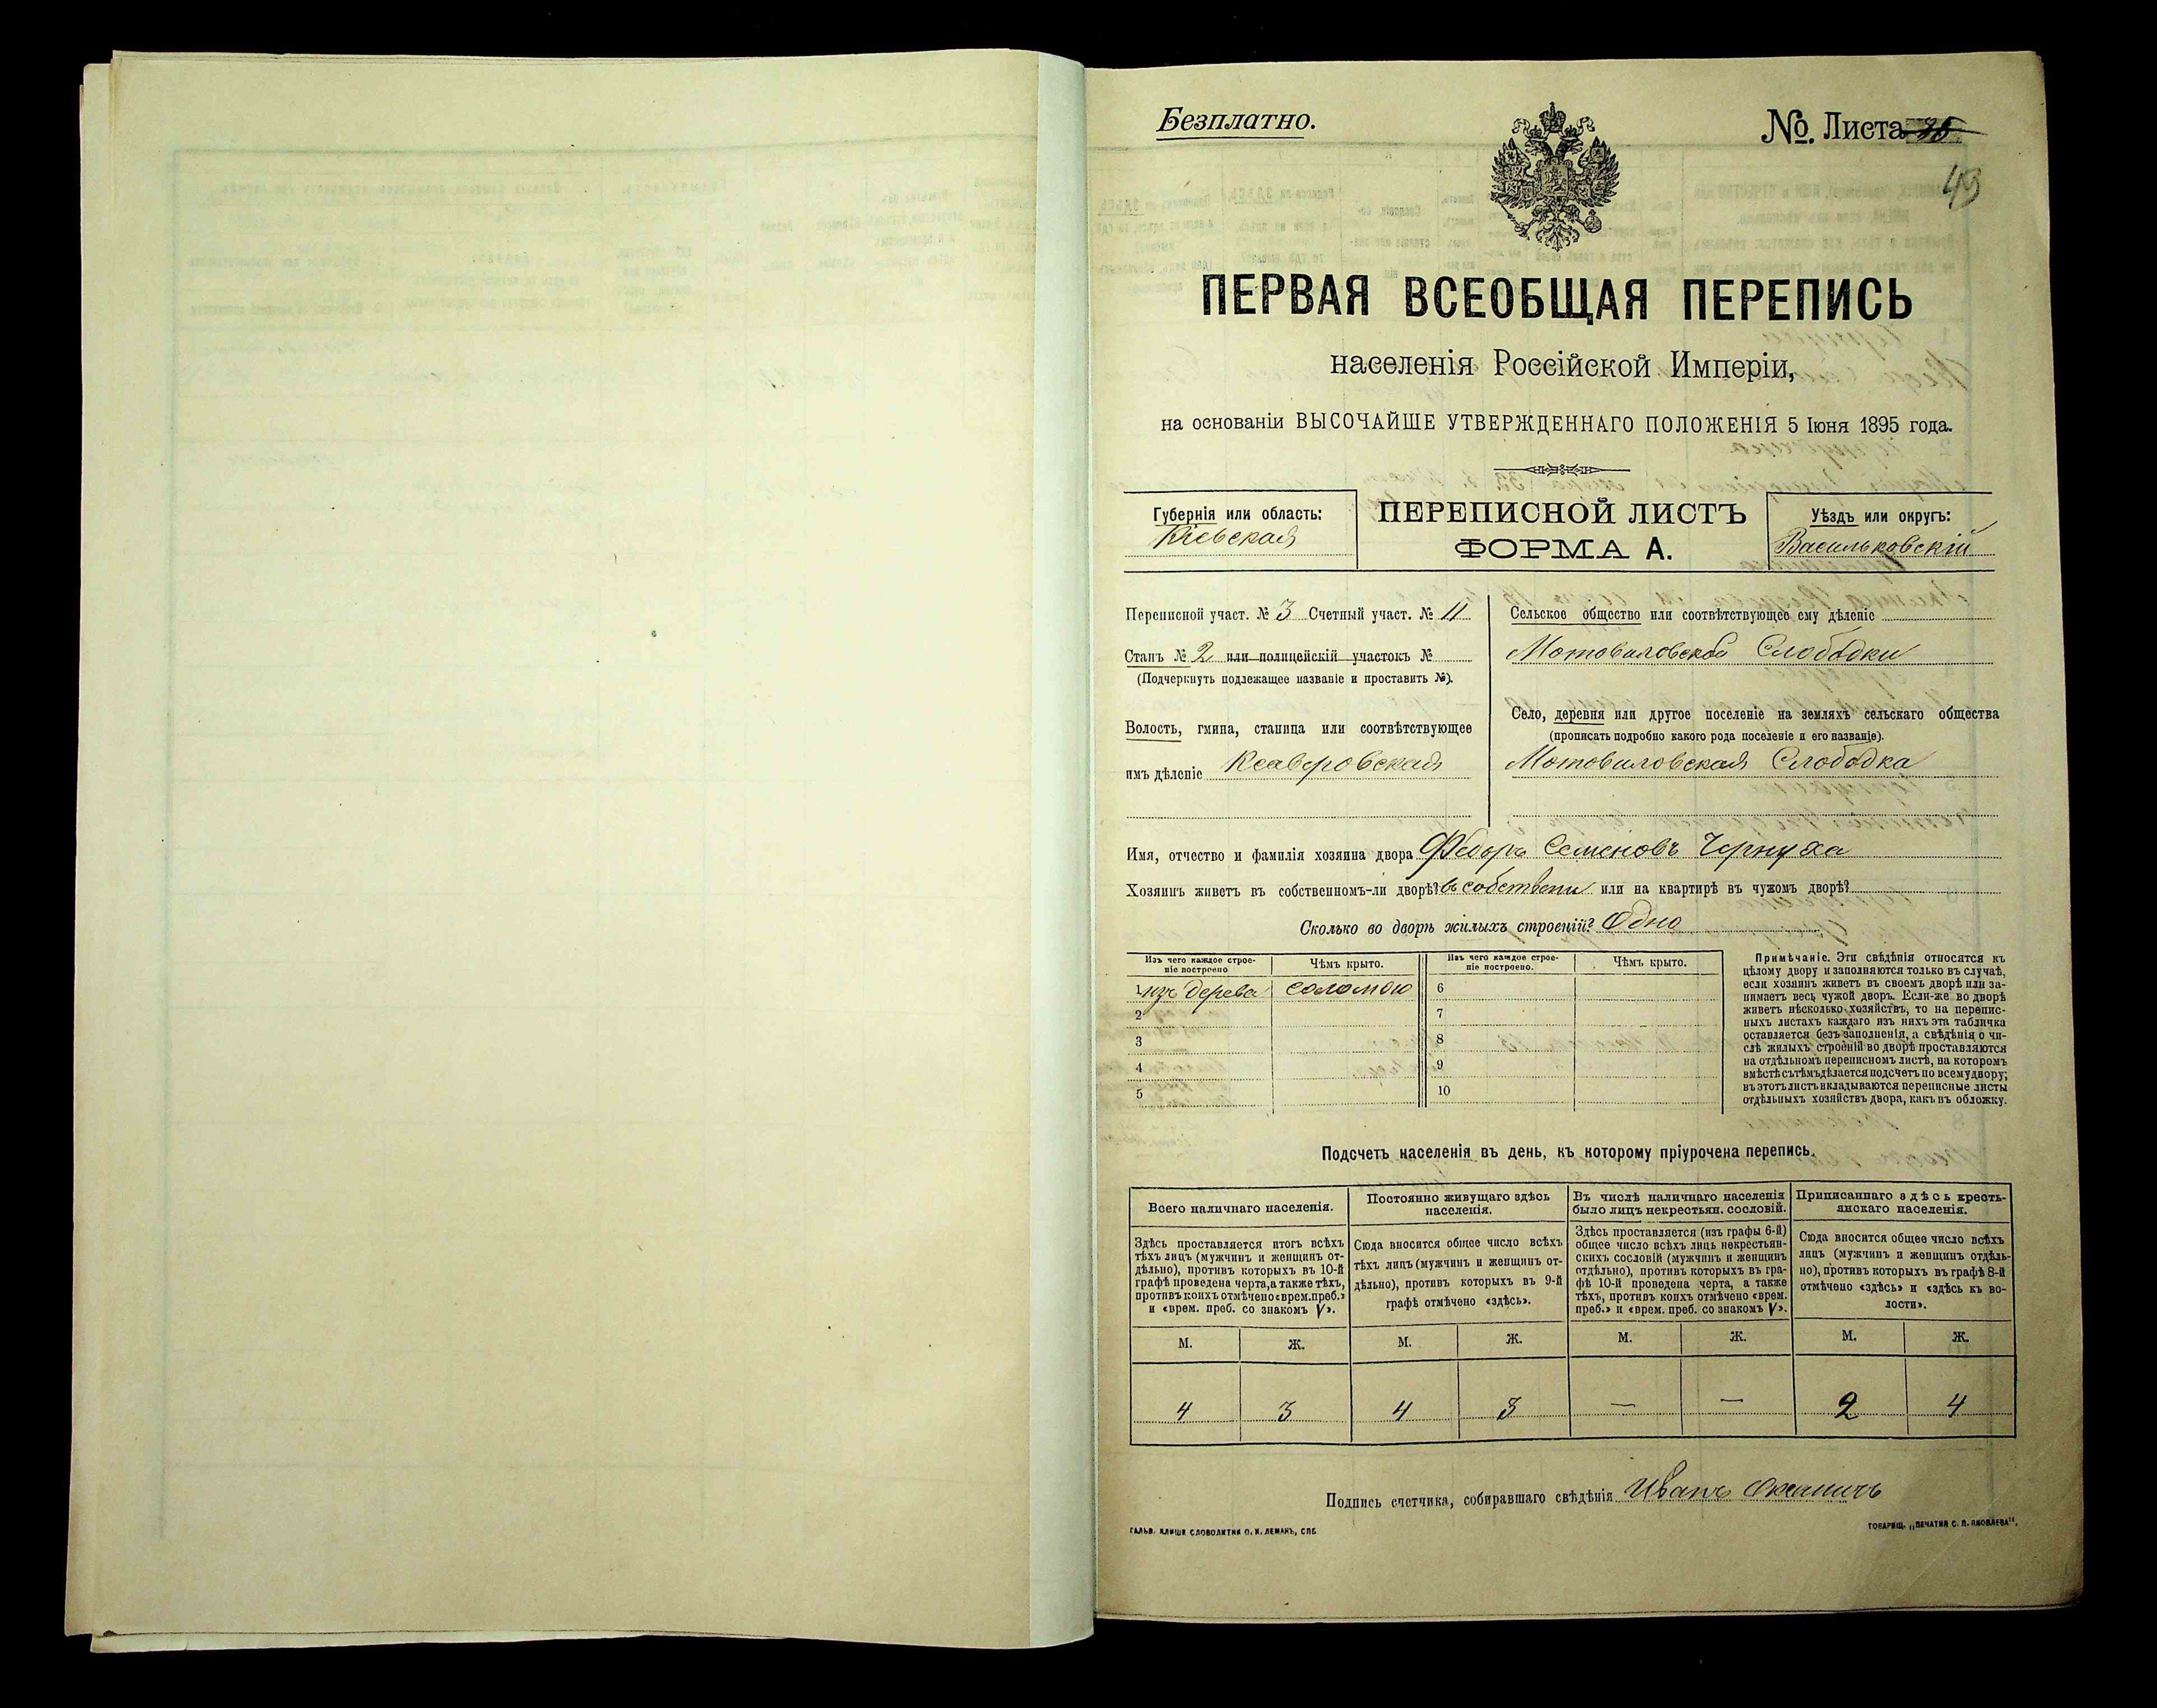 Безплатно.
№. Листа 35
49
ПЕРВАЯ ВСЕОБЩАЯ ПЕРЕПИСЬ
населенія Россійской Имперіи,
на основаніи ВЫСОЧАЙШЕ УТВЕРЖДЕННАГО ПОЛОЖЕНІЯ 5 Іюня 1895 года.
Губернія или область:
Кіевская
ПЕРЕПИСНОЙ ЛИСТЪ
ФОРМА А.
Уѣздъ или округъ:
Васильковскій
Переписной участ. № 3 Счетный участ. № 11
Станъ № 2 или полицейскій участокъ №
(Подчеркнуть подлежащее названіе и проставить №).
Волость, гмина, станица или соотвѣтствующее
имъ дѣленіе Ксаверовская
Сельское общество или соотвѣтствующее ему дѣленіе
Мотовиловской Слободки
Село, деревня или другое поселеніе на земляхъ сельскаго общества
(прописать подробно какого рода поселеніе и его названіе).
Мотовиловская Слободка
Имя, отчество и фамилія хозяина двора Федоръ Семеновъ Чернуха
Хозяинъ живетъ въ собственномъ-ли дворѣ? въ собствени или на квартирѣ въ чужомъ дворѣ?
Сколько во дворѣ жилыхъ строеній? Одно
Изъ чего каждое строе-
ніе построено
Чѣмъ крыто.
Изъ чего каждое строе-
ніе построено.
Чѣмъ крыто.
1 изъ дерева соломою 6
2 7
3 8
4 9
5 10
Примѣчаніе. Эти свѣдѣнія относятся къ
цѣлому двору и заполняются только въ случаѣ,
если хозяинъ живетъ въ своемъ дворѣ или за-
нимаетъ весь чужой дворъ. Если-же во дворѣ
живетъ нѣсколько хозяйствъ, то на перепис-
ныхъ листахъ каждаго изъ нихъ эта табличка
оставляется безъ заполненія, а свѣдѣнія о чи-
слѣ жилыхъ строеній во дворѣ проставляются
на отдѣльномъ переписномъ листѣ, на которомъ
вмѣстѣ съ тѣмъ дѣлается подсчетъ по всему двору;
въ этотъ листъ вкладываются переписные листы
отдѣльныхъ хозяйствъ двора, какъ въ обложку.
Подсчетъ населенія въ день, къ которому пріурочена перепись.
Всего наличнаго населенія.
Здѣсь проставляется итогъ всѣхъ
тѣхъ лицъ (мужчинъ и женщинъ от-
дѣльно), противъ которыхъ въ 10-й
графѣ проведена черта, а также тѣхъ,
противъ коихъ отмѣчено «врем. преб.»
и «врем. преб. со знакомъ V».
Постоянно живущаго здѣсь
населенія.
Сюда вносится общее число всѣхъ
тѣхъ лицъ (мужчинъ и женщинъ от-
дѣльно), противъ которыхъ въ 9-й
графѣ отмѣчено «здѣсь».
Въ числѣ наличнаго населенія
было лицъ некрестьян. сословій.
Здѣсь проставляется (изъ графы 6-й)
общее число всѣхъ лицъ некрестьян-
скихъ сословій (мужчинъ и женщинъ
отдѣльно), противъ которыхъ въ гра-
фѣ 10-й проведена черта, а также
тѣхъ, противъ коихъ отмѣчено «врем.
преб.» и «врем. преб. со знакомъ V».
Приписаннаго здѣсь кресть-
янскаго населенія.
Сюда вносится общее число всѣхъ
лицъ (мужчинъ и женщинъ отдѣль-
но), противъ которыхъ въ графѣ 8-й
отмѣчено «здѣсь» и «здѣсь къ во-
лости».
М. Ж. М. Ж. М. Ж. М. Ж.
4 3 4 3 — — 2 4
Подпись счетчика, собиравшаго свѣдѣнія Иванъ
ГАЛЬВ. КЛИШЕ СЛОВОЛИТНИ О. И. ЛЕМАНЪ, СПБ.
ТОВАРИЩ. „ПЕЧАТНЯ С. П. ЯКОВЛЕВА".